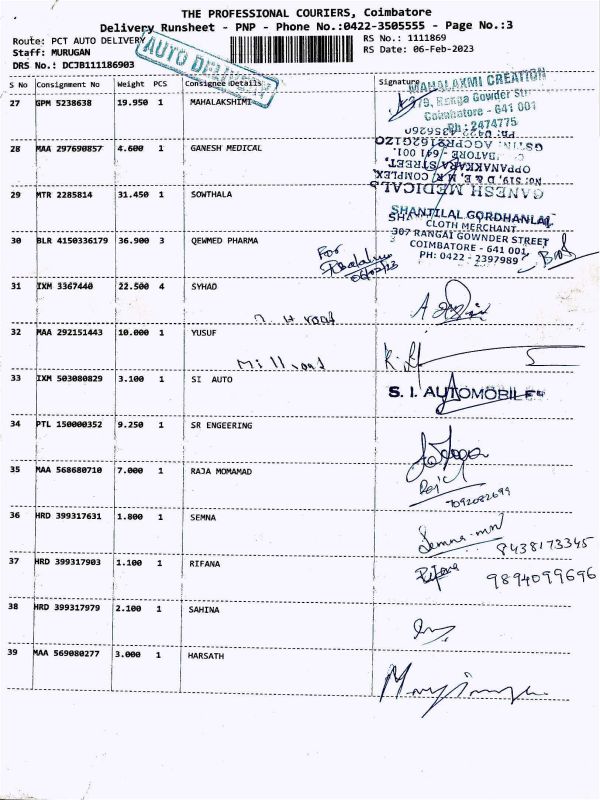 THE PROFESSIONAL COURIERS, Coimbatore
Delivery Runsheet - PNP - Phone No.:0422-3505555 - Page No.:3
Route: PCT AUTO DELIVERY
RS No.: 1111869
Staff: MURUGAN
RS Date: 06-Feb-2023
DRS No.: DCJB111186903
AUTO DELIVERY
S No Consignment No Weight PCS Consignee Details Signature
27 GPM 5238638 19.950 1 MAHALAKSHIMI
MAHALAXMI CREATION
79, Ranga Gowder Str
Coimbatore - 641 001
Ph: 2474775
28 MAA 297690857 4.600 1 GANESH MEDICAL
GANESH MEDICALS
NO: 519, D & E, N.R. COMPLEX,
OPPANAKKARA STREET,
BATORE - 641 001.
GSTIN: AGCPR2162G1ZO
PH: 0422-4356260
29 MTR 2285814 31.450 1 SOWTHALA
SHANTILAL GORDHANLAL
CLOTH MERCHANT
307 RANGAI GOWNDER STREET
COIMBATORE - 641 001
PH: 0422 - 2397989
30 BLR 4150336179 36.900 3 QEWMED PHARMA
For
06/02/23
31 IXM 3367440 22.500 4 SYHAD
32 MAA 292151443 10.000 1 YUSUF
Mill road
33 IXM 503080829 3.100 1 SI AUTO
S. I. AUTOMOBILES
34 PTL 150000352 9.250 1 SR ENGEERING
35 MAA 568680710 7.000 1 RAJA MOMAMAD
7092022699
36 HRD 399317631 1.800 1 SEMNA
Semna
9438173345
37 HRD 399317903 1.100 1 RIFANA
Rifana
9894099696
38 HRD 399317979 2.100 1 SAHINA
39 MAA 569080277 3.000 1 HARSATH